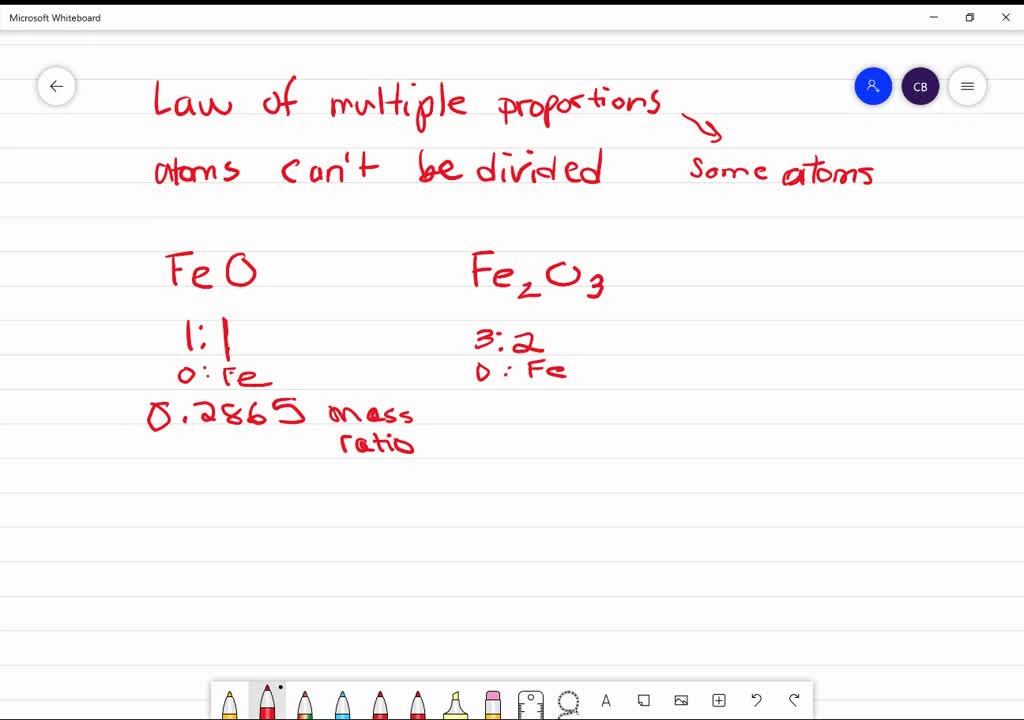 Microsoft Whiteboard
CB
Law of multiple proportions
atoms can't be divided
some atoms
FeO
Fe2O3
1:1
3:2
O:Fe
O:Fe
0.2865 mass
ratio
A